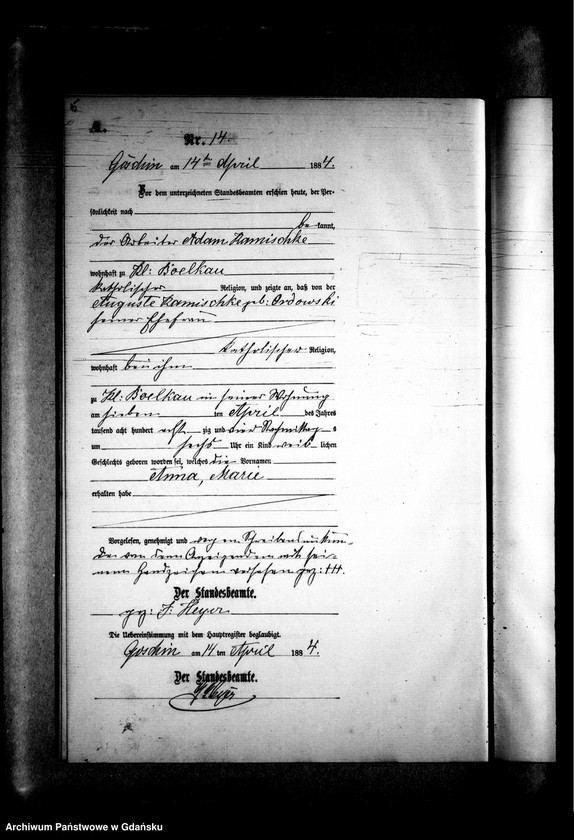 A.
Nr. 14
Goschin am 14ten April 1884.
Vor dem unterzeichneten Standesbeamten erschien heute, der Per-
sönlichkeit nach
be kannt,
der Arbeiter Adam Kamischke
wohnhaft zu Kl: Boelkau
katholischer Religion, und zeigte an, daß von der
Auguste Kamischke geb: Ordowski
seiner Ehefrau
katholischer Religion,
wohnhaft bei ihm
zu Kl: Boelkau in seiner Wohnung
am sieben ten April des Jahres
tausend acht hundert acht zig und vier Nachmittag s
um sechs Uhr ein Kind weib lichen
Geschlechts geboren worden sei, welches die Vornamen
Anna, Marie
erhalten habe
Vorgelesen, genehmigt und wegen Schreibensunkun-
de von dem Anzeigenden mit sei-
nem Handzeichen versehen gez: †††.
Der Standesbeamte.
gez: F: Heyer
Die Uebereinstimmung mit dem Hauptregister beglaubigt.
Goschin am 14 ten April 1884.
Der Standesbeamte.
Heyer
Archiwum Państwowe w Gdańsku